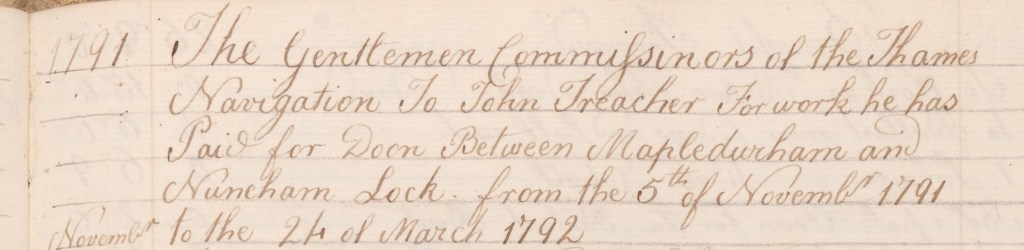 1791 The Gentlemen Commißinors of the Thames
Navigation To John Treacher For work he has
Paid for Doon Between Mapledurham and
Nuneham Lock. from the 5th of Novembr 1791
Novembr to the 24 of March 1792